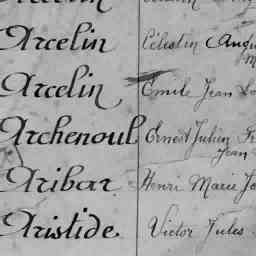 Arcelin Célestin
Arcelin Emile Jean
Archenoul Ernest Julien
Jean
Aribar Henri Marie
Aristide Victor Jules